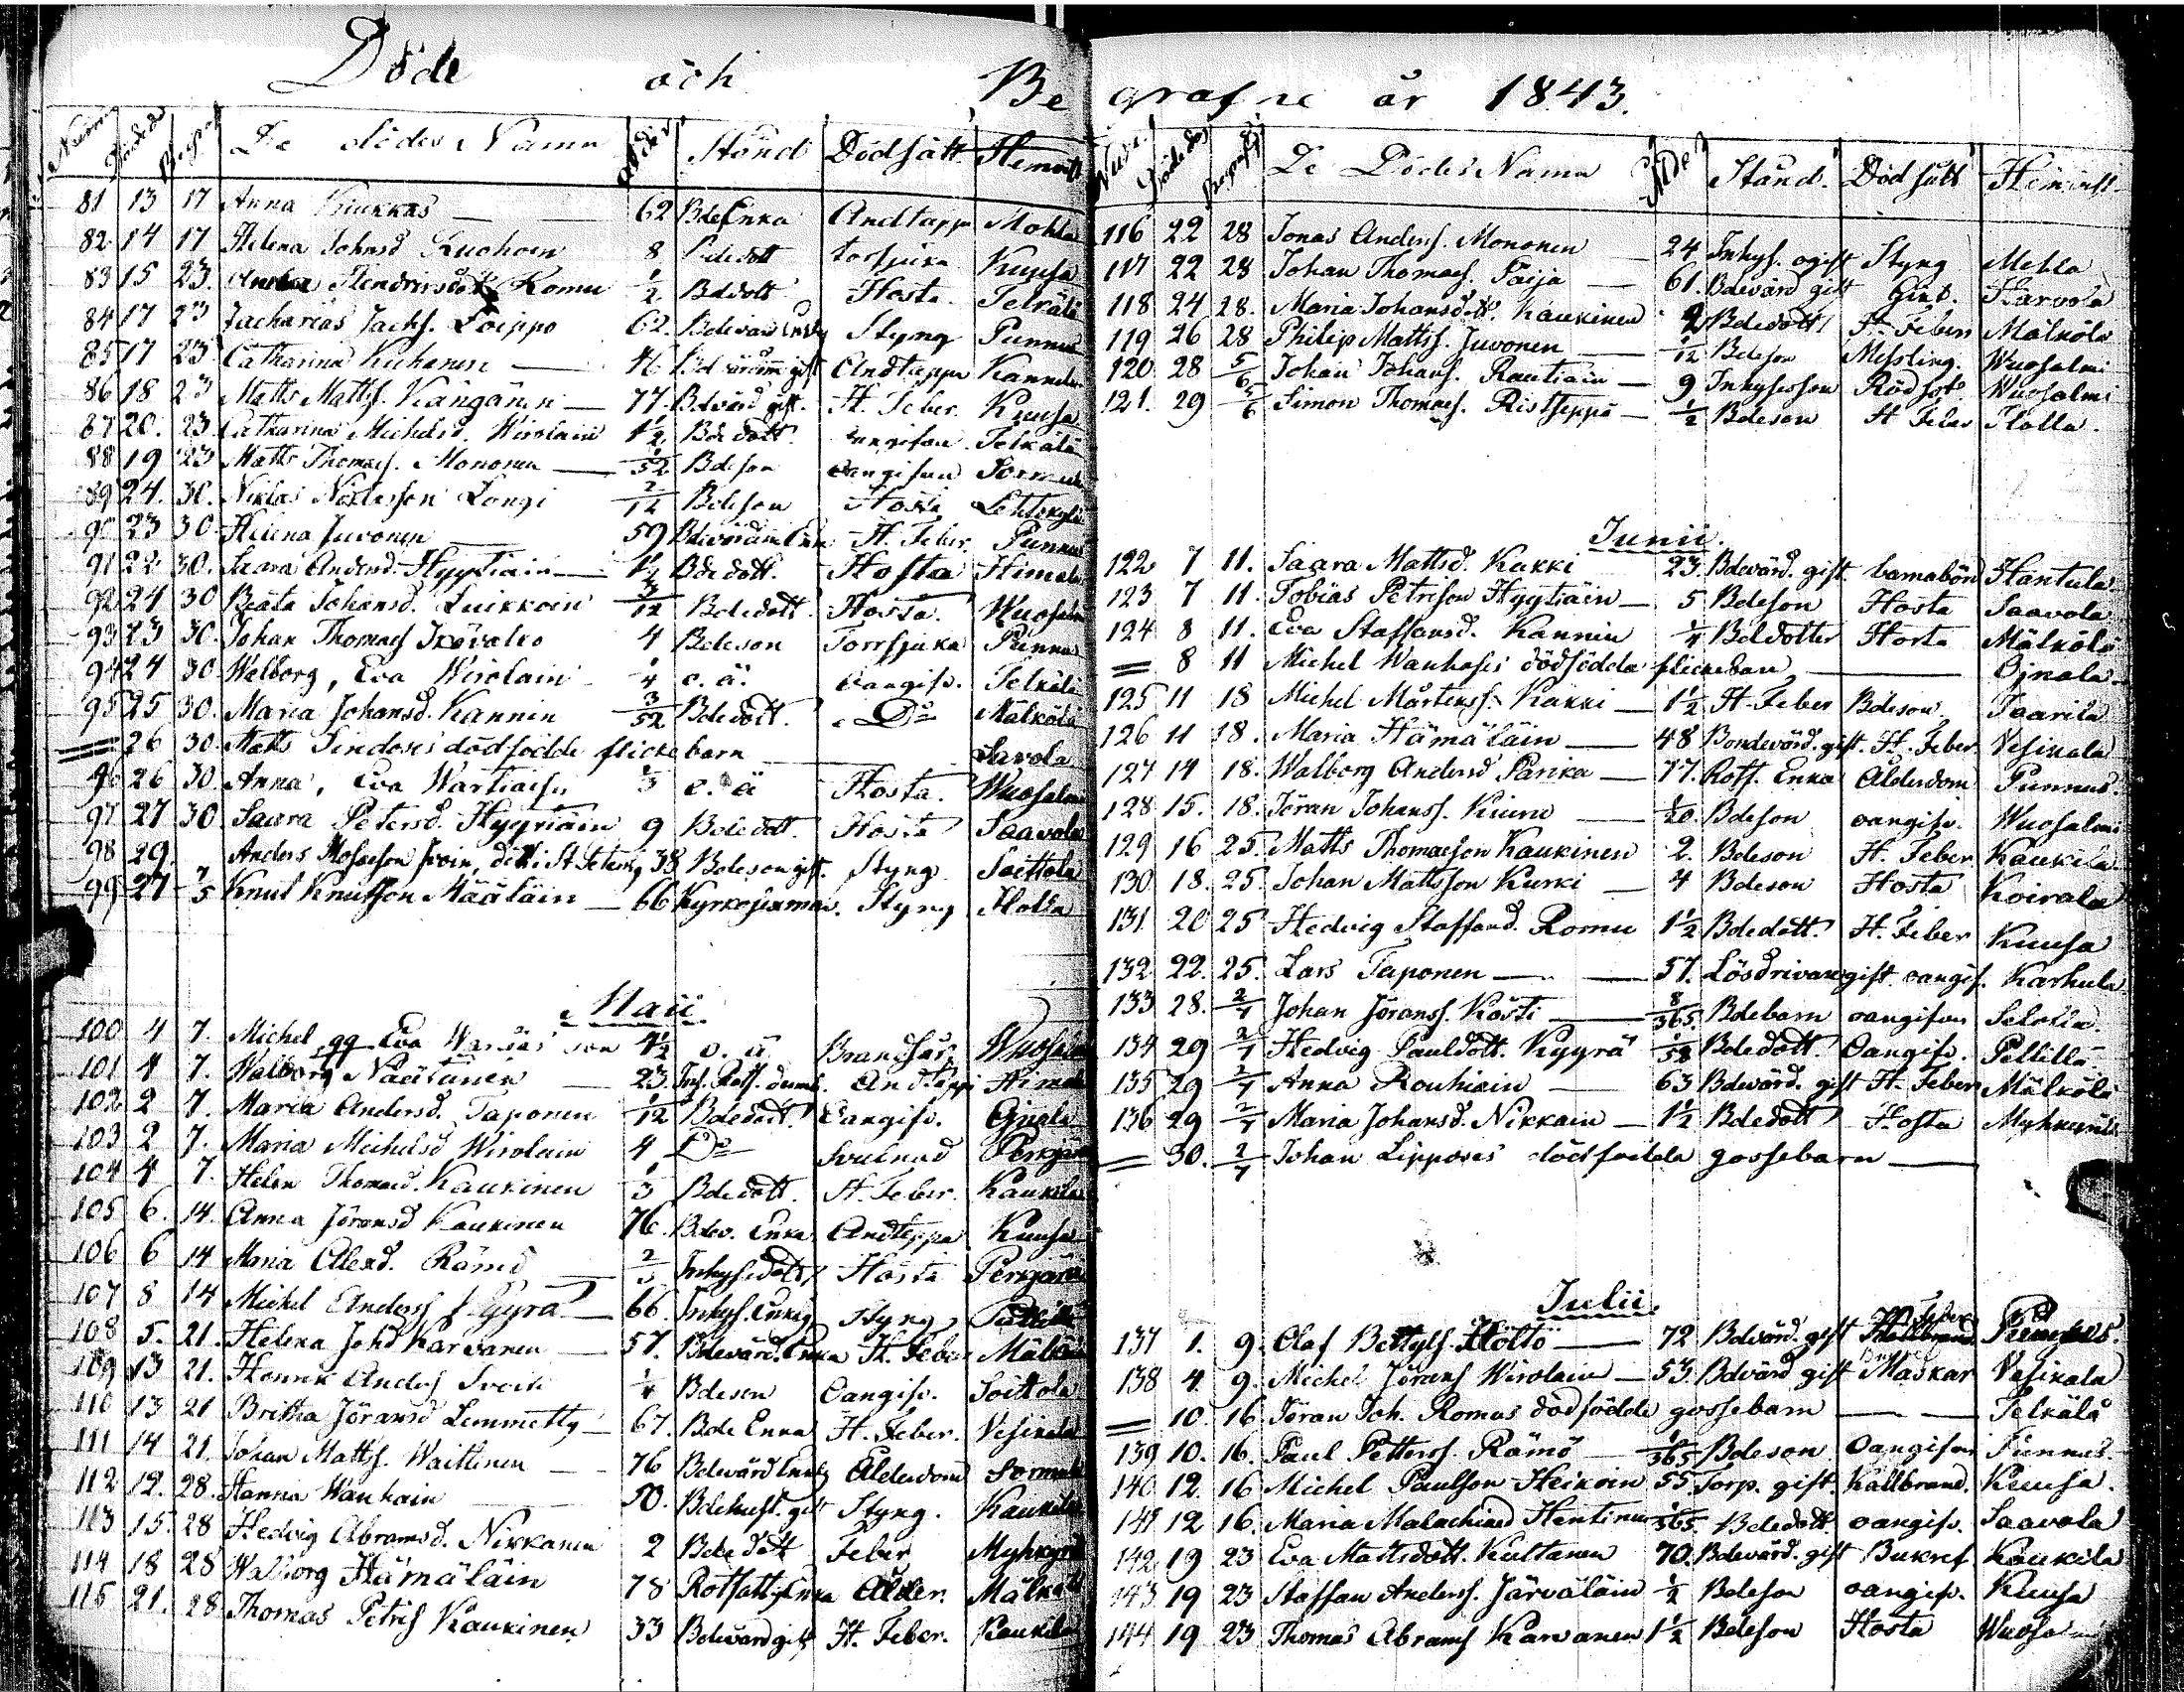 Döde och Be
De dödes Namn Stånd Dödsätt Hemvist
81 13 17 Anna Kiukkas — — 62 Bde Enka Andtäppa Mohla
82 14 17 Helena Johansd. Kuohoin 8 Bdedott torrsjuka Kuusa
83 15 23. Hendricsdott Romu 1/2. Bdedott Hosta. Telkälä
84 17 23 Zacharias Zachs. Loippo 62. Bdevärd Enkl. Styng Punnus
85 17 23 Catharina Kuhanen — 46 Bdvärdinn gift Andtäppa
86 18 23 Matts Matts. Kängänen — 77. Bdevärd gift. H. Feber. Kuusa
87 20. 23. Catharina Michelsd. Wirolain 1/2. Bdedott. oangifven Telkälä
88 19 23 Matts Thomass. Mononen — 1/52 Bdeson oangifven
89 24. 30. Niklas Niklasson Longi 2/12 Bdeson Hosta
90 23 30. Helena Juvonen — 59 Bdevärdinn Enka H. Feber. Punnus
91 22 30. Saara Andersd. Hyytiäin — 1/4 Bdedott. Hosta
92 24 30 Beata Johansd. Luikkoin 3/12 Bdedott. Hosta. Wuosalmi
93 23 30. Johan Thomass. 4 Bdeson Torrsjuka Punnus
94 24 30 Walborg, Eva Wirolain 1/4 o. ä. oangifv. Telkälä
95 25 30. Maria Johansd. Kannin 3/52 Bdedott. D:o Mälkölä
= 26 30. Matts dödfödde flickebarn — Savola
96 26 30. Anna, Eva 1/3 o. ä Hosta. Wuosalmi
97 27 30 Saara Petersd. Hyytiäin 9 Bdedott. Hosta Saavola
98 29. " Anders död i St Petersb. 38 Bdeson gift. Styng Soittola
99 27 7/5 Knut Knutsson Määläin — 66 Styng Holla
Maii
100 4 7. Michel qq Eva son 1 1/2 o. ä. Wuosalmi
101 4 7. Walborg Näätänen — 23. Andtäppa
102 2 7. Maria Andersd. Taponen 1/12 Bdedott. Oangifv. Ojnala
103 2 7. Maria Michelsd Wirolain 4 D:o Svulnad Perkjärvi
104 4 7. Helen Thomasd. Kaukinen 1/3 Bdedott. H. Feber. Kaukila
105 6. 14. Anna Jöransd Kaukinen 76. Bdev. Enka Andtäppa Kuusa
106 6 14 Maria Alexd. Rämö — 2/3 Inhysedott. Hosta Perkjärvi
107 8 14 Michel Anderss. Kyyrä — 66 Inhys. Enkl. Styng
108 5. 21. Helena Johd Karvanen — 57. Bdevärd. Enka H. Feber Mälkölä
109 13 21. Henrik Anders 1/4 Bdeson Oangifv. Soittola
110 13 21 Britha Jöransd Lemmetty — 67. Bde Enka H. Feber. Vesikala
111 14 21. Johan Matts. Waittinen — 76 Bdevärd Enkl. Ålderdom
112 12. 28. Hanna Wanhain 50. Bdehust. gift Styng. Kaukila
113 15. 28 Hedvig Abramsd. Nikkanen 2 Bdedott Feber
114 18 28 Walborg Hämäläin 78 Enka Ålder. Mälkölä
115 21. 28 Thomas Petris Kaukinen. 33 Bdevärd gift H. Feber. Kaukila
grafne år 1843.
De Dödes Namn Ålder Stånd. Dödsätt Hemvist.
116 22 28 Jonas Anders. Mononen — 24 Inhys. ogift Styng Mohla
117 22 28 Johan Thomas. Paija — 61. Bdevärd gift Gikt. Harvola
118 24 28. Maria Johansdott. Kaukinen 2 Bdedott H. Feber Mälkölä
119 26 28 Philip Mattss. Juvonen — 1/12 Bdeson Messling. Wuosalmi
120. 28 5/6 Johan Johans. Rautiain — 9 Inhysesson Rödsot. Wuosalmi
121. 29 5/6 Simon Thomas. Ristseppä — 1/2 Bdeson H Feber Holla.
Junii.
122 7 11. Saara Mattsd. Kukki 23. Bdevärd. gift barnabörd Hantula
123 7 11. Tobias Petrison Hyytiäin — 5 Bdeson Hosta Saavola
124 8 11. Eva Staffansd. Kannin 1/4 Bdedotter Hosta Mälkölä
= 8 11 Michel Wanhases dödfödda flickebarn — Ojnala.
125 11 18 Michel Mårtens. Kakki — 1 1/2 H. Feber Bdeson Taarila
126 11 18. Maria Hämäläin — 48 Bondevärd. gift. H. Feber. Vesikala
127 14 18. Walborg Andersd Parika — 77. Rots. Enka Ålderdom Punnus.
128 15. 18. Jöran Johanss. Kiuru — 1/20. Bdeson oangifv. Wuosalmi
129 16 25. Matts Thomasson Kaukinen 2. Bdeson H. Feber Kaukila.
130 18. 25. Johan Mattsson Kurki — 4 Bdeson Hosta Koirala
131. 20 25 Hedvig Staffansd. Romu 1 1/2 Bdedott. H. Feber Kuusa
132 22. 25. Lars Taponen — — 57. Lösdrivare gift oangif. Karhula
133 28. 2/7 Johan Jörans. Kösti — 8/365. Bdebarn oangifven
134 29 2/7 Hedvig Pauldott. Kyyrä Bdedott. Oangifv. Pällilä
135 29 2/7 Anna Rouhiain — 63 Bdevärd. gift H. Feber Mälkölä
136 29 2/7 Maria Johansd. Nikkain — 1 1/2 Bdedott Hosta
= 30. 2/7 Johan Lipposes dödfödda gossebarn —
Julii.
137 1. 9. Olaf Bettyls. Höltö — 72 Bdevärd. gift Feber
138 4. 9. Michel Jörans Wirolain — 53. Bdvärd gift Maskar Vesikala
= 10. 16. Jöran Joh. Romus dödfödde gossebarn — — Telkälä
139 10. 16. Paul Petterss. Rämö — 1/365 Bdeson Oangifven Punnus.
140. 12 16 Michel Paulson Heikoin 55 Torp. gift. Kallbrand. Kuusa.
141 12 16. Maria Malachiasd Hentinen 1/365. Bdedott oangifv. Saavola
142 19 23 Eva Mattsdott. Kultanen 70. Bdevärd. gift Bukref Kaukila
143 19 23 Staffan Anders. Järväläin 1/2 Bdeson oangifv. Kuusa
144 19 23 Thomas Abrams Karvanen 1 1/2 Bdeson Hosta